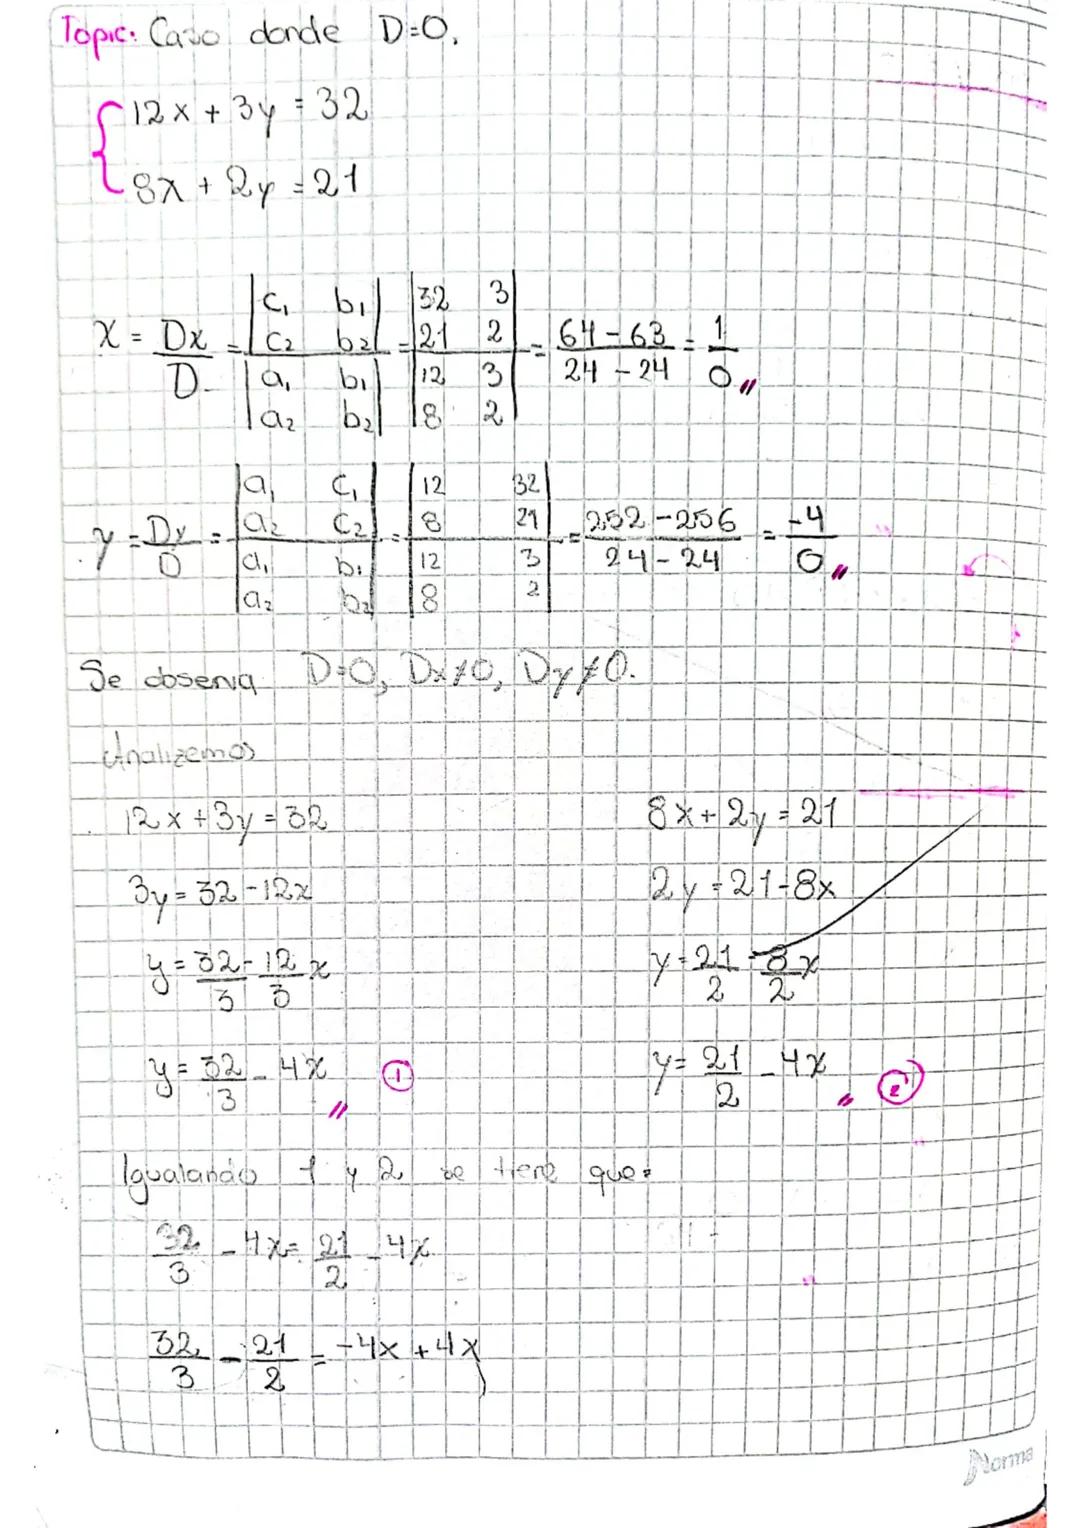 Topic: Caso donde D=0.
12x + 3y = 32
8x + 2y = 21
x = Dx/D = |c₁ b₁; c₂ b₂| / |a₁ b₁; a₂ b₂| = |32 3; 21 2| / |12 3; 8 2| = (64-63)/(24-24) = 1/0
y = Dy/D = |a₁ c₁; a₂ c₂| / |a₁ b₁; a₂ b₂| = |12 32; 8 21| / |12 3; 8 2| = (252-256)/(24-24) = -4/0
Se observa D=0, Dx≠0, Dy≠0.
Analizemos
12x + 3y = 32
3y = 32 - 12x
y = 32/3 - 12/3 x
y = 32/3 - 4x ①
8x + 2y = 21
2y = 21 - 8x
y = 21/2 - 8/2 x
y = 21/2 - 4x ②
Igualando 1 y 2 se tiene que:
32/3 - 4x = 21/2 - 4x
32/3 - 21/2 = -4x + 4x
Norma